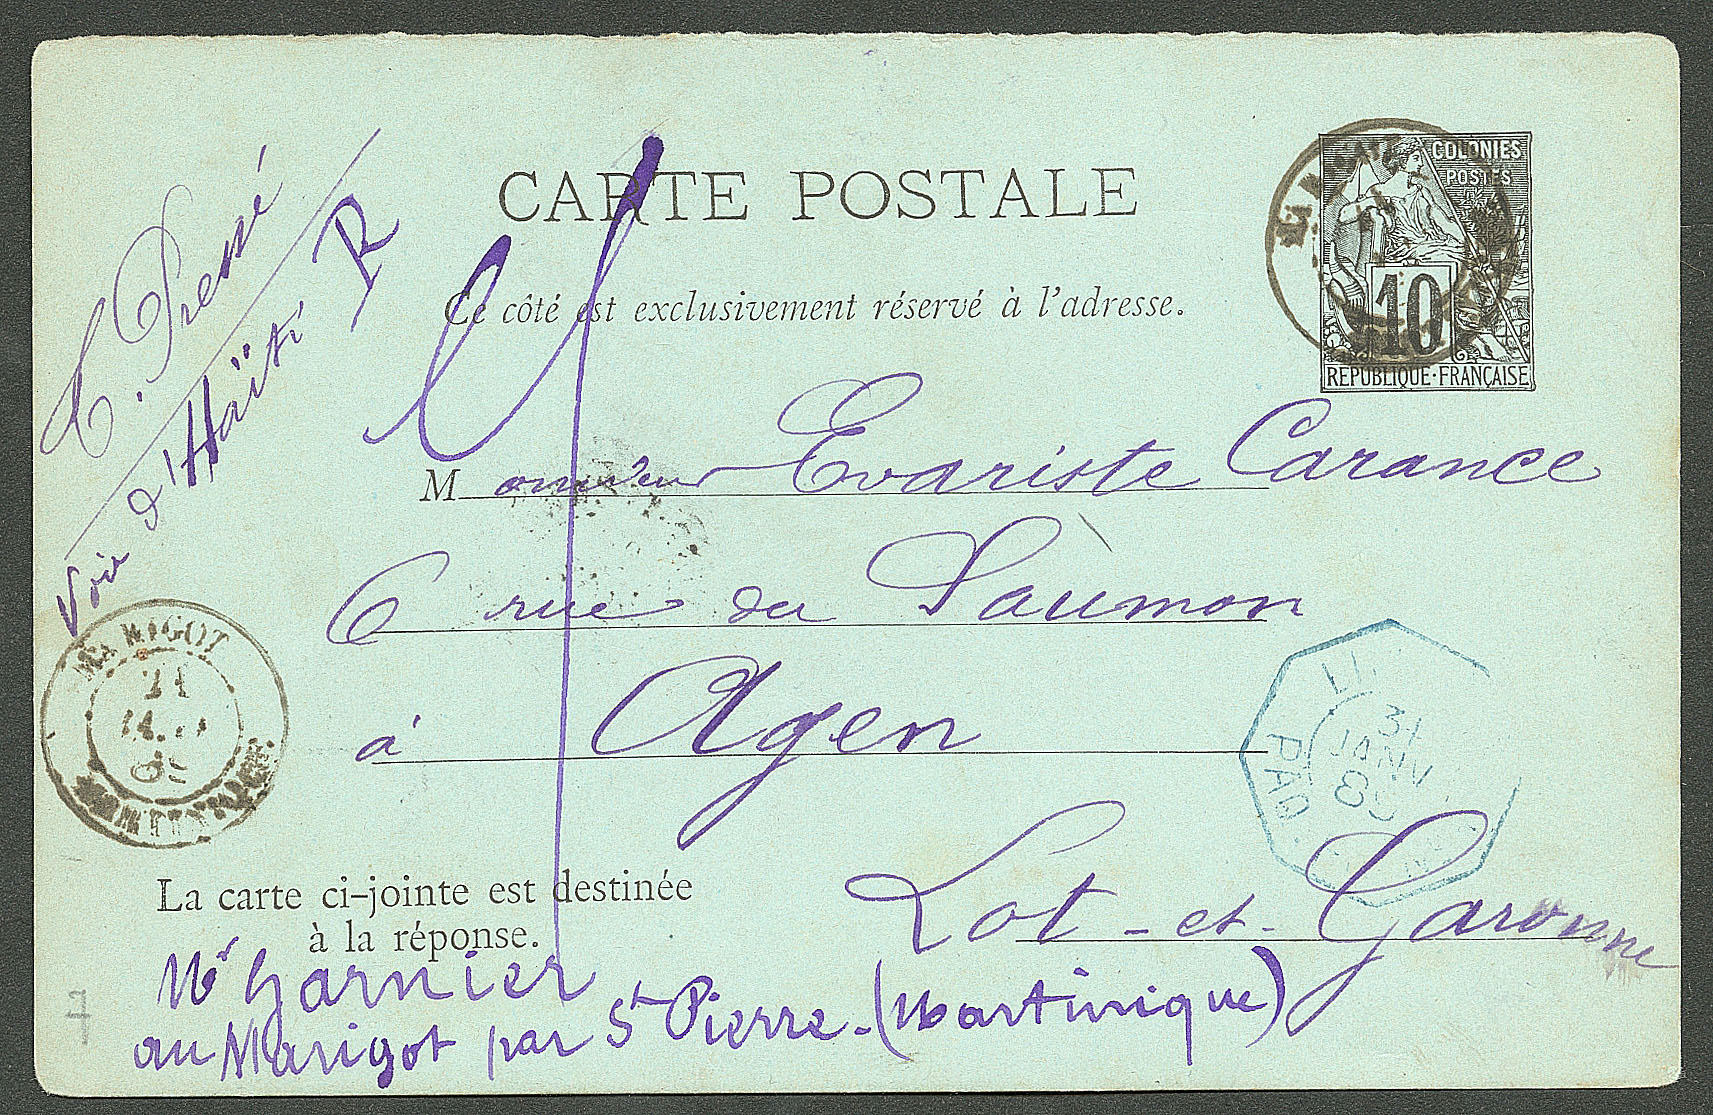 CARTE POSTALE
Ce côté est exclusivement réservé à l'adresse.
COLONIES
POSTES
10
REPUBLIQUE·FRANÇAISE
Voie d'Haïti
R
Monsieur Evariste Carance
6 rue du Saumon
à Agen
Lot-et-Garonne
MARIGOT
21
MARTINIQUE
31
JANV
PAQ
La carte ci-jointe est destinée
à la réponse.
Mr Garnier
au Marigot par St Pierre-(Martinique)